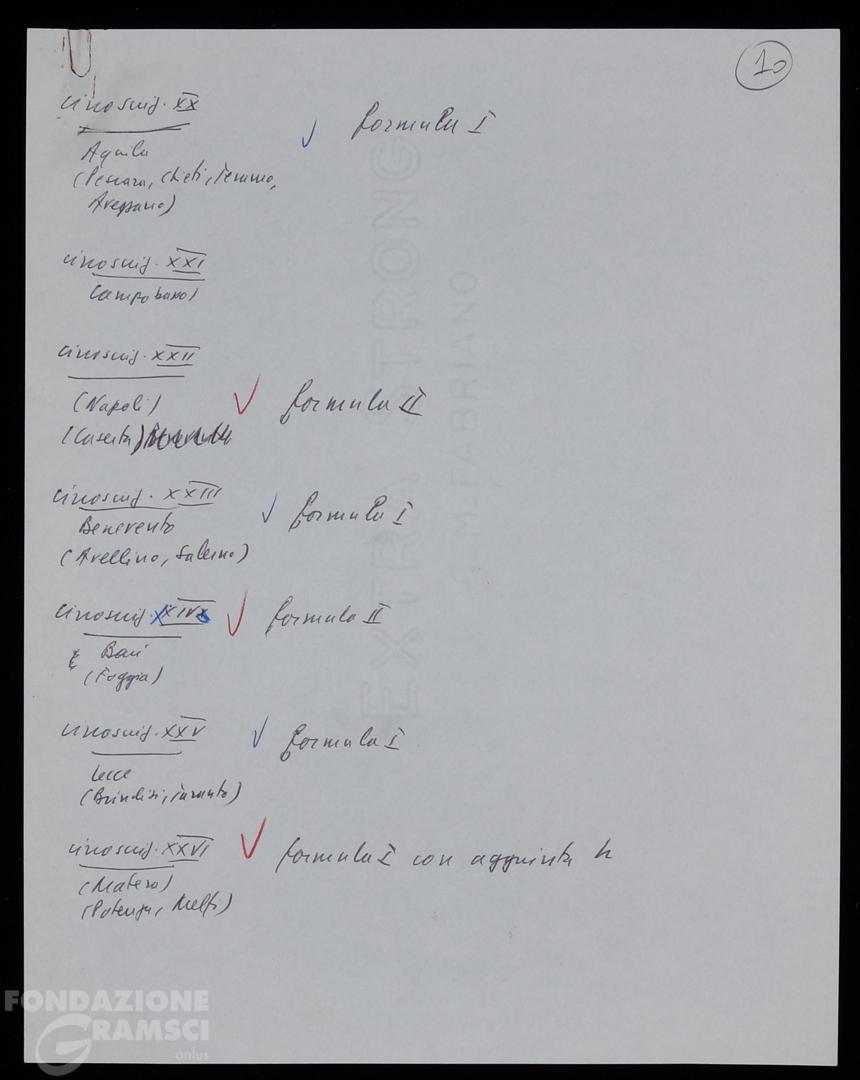 10
circoscriz. XX
formula I
Aquila
(Pescara, Chieti, Teramo,
Avezzano)
circoscriz. XXI
Campobasso)
circoscriz. XXII
(Napoli)
formula II
(Caserta)
circoscriz. XXIII
Benevento
formula I
(Avellino, Salerno)
circoscriz. XXIV
formula II
Bari
(Foggia)
circoscriz. XXV
formula I
Lecce
(Brindisi, Taranto)
circoscriz. XXVI
formula I con aggiunta
(Matera)
(Potenza, Melfi)
EXTRA STRONG
G. M. FABRIANO
FONDAZIONE
GRAMSCI
onlus